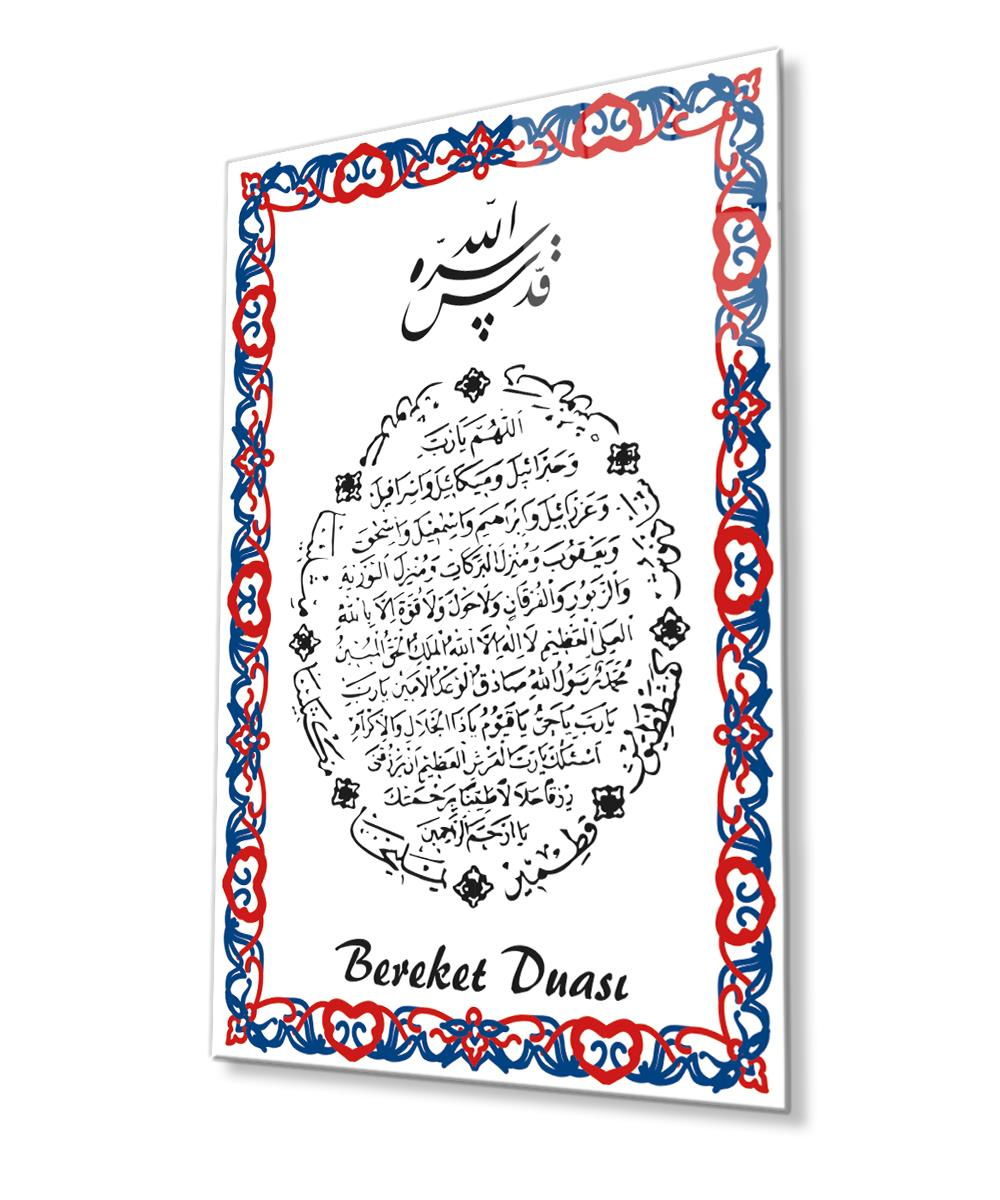 قدّس الله سرّه
اللهم يارب
وجبرائيل وميكائيل واسرافيل
وعزرائيل وابراهيم واسمعيل واسحق
ويعقوب ومنزل البركات ومنزل التورية
والزبور والفرقان ولا حول ولا قوة الا بالله
العلى العظيم لا اله الا الله الملك الحق المبين
محمد رسول الله صادق الوعد الامين يارب
يارب ياحى ياقيوم ياذا الجلال والاكرام
اسئلك يارب العرش العظيم ان ترزقنى
رزقا حلالا طيبا برحمتك
يا ارحم الراحمين
قطمير
Bereket Duası